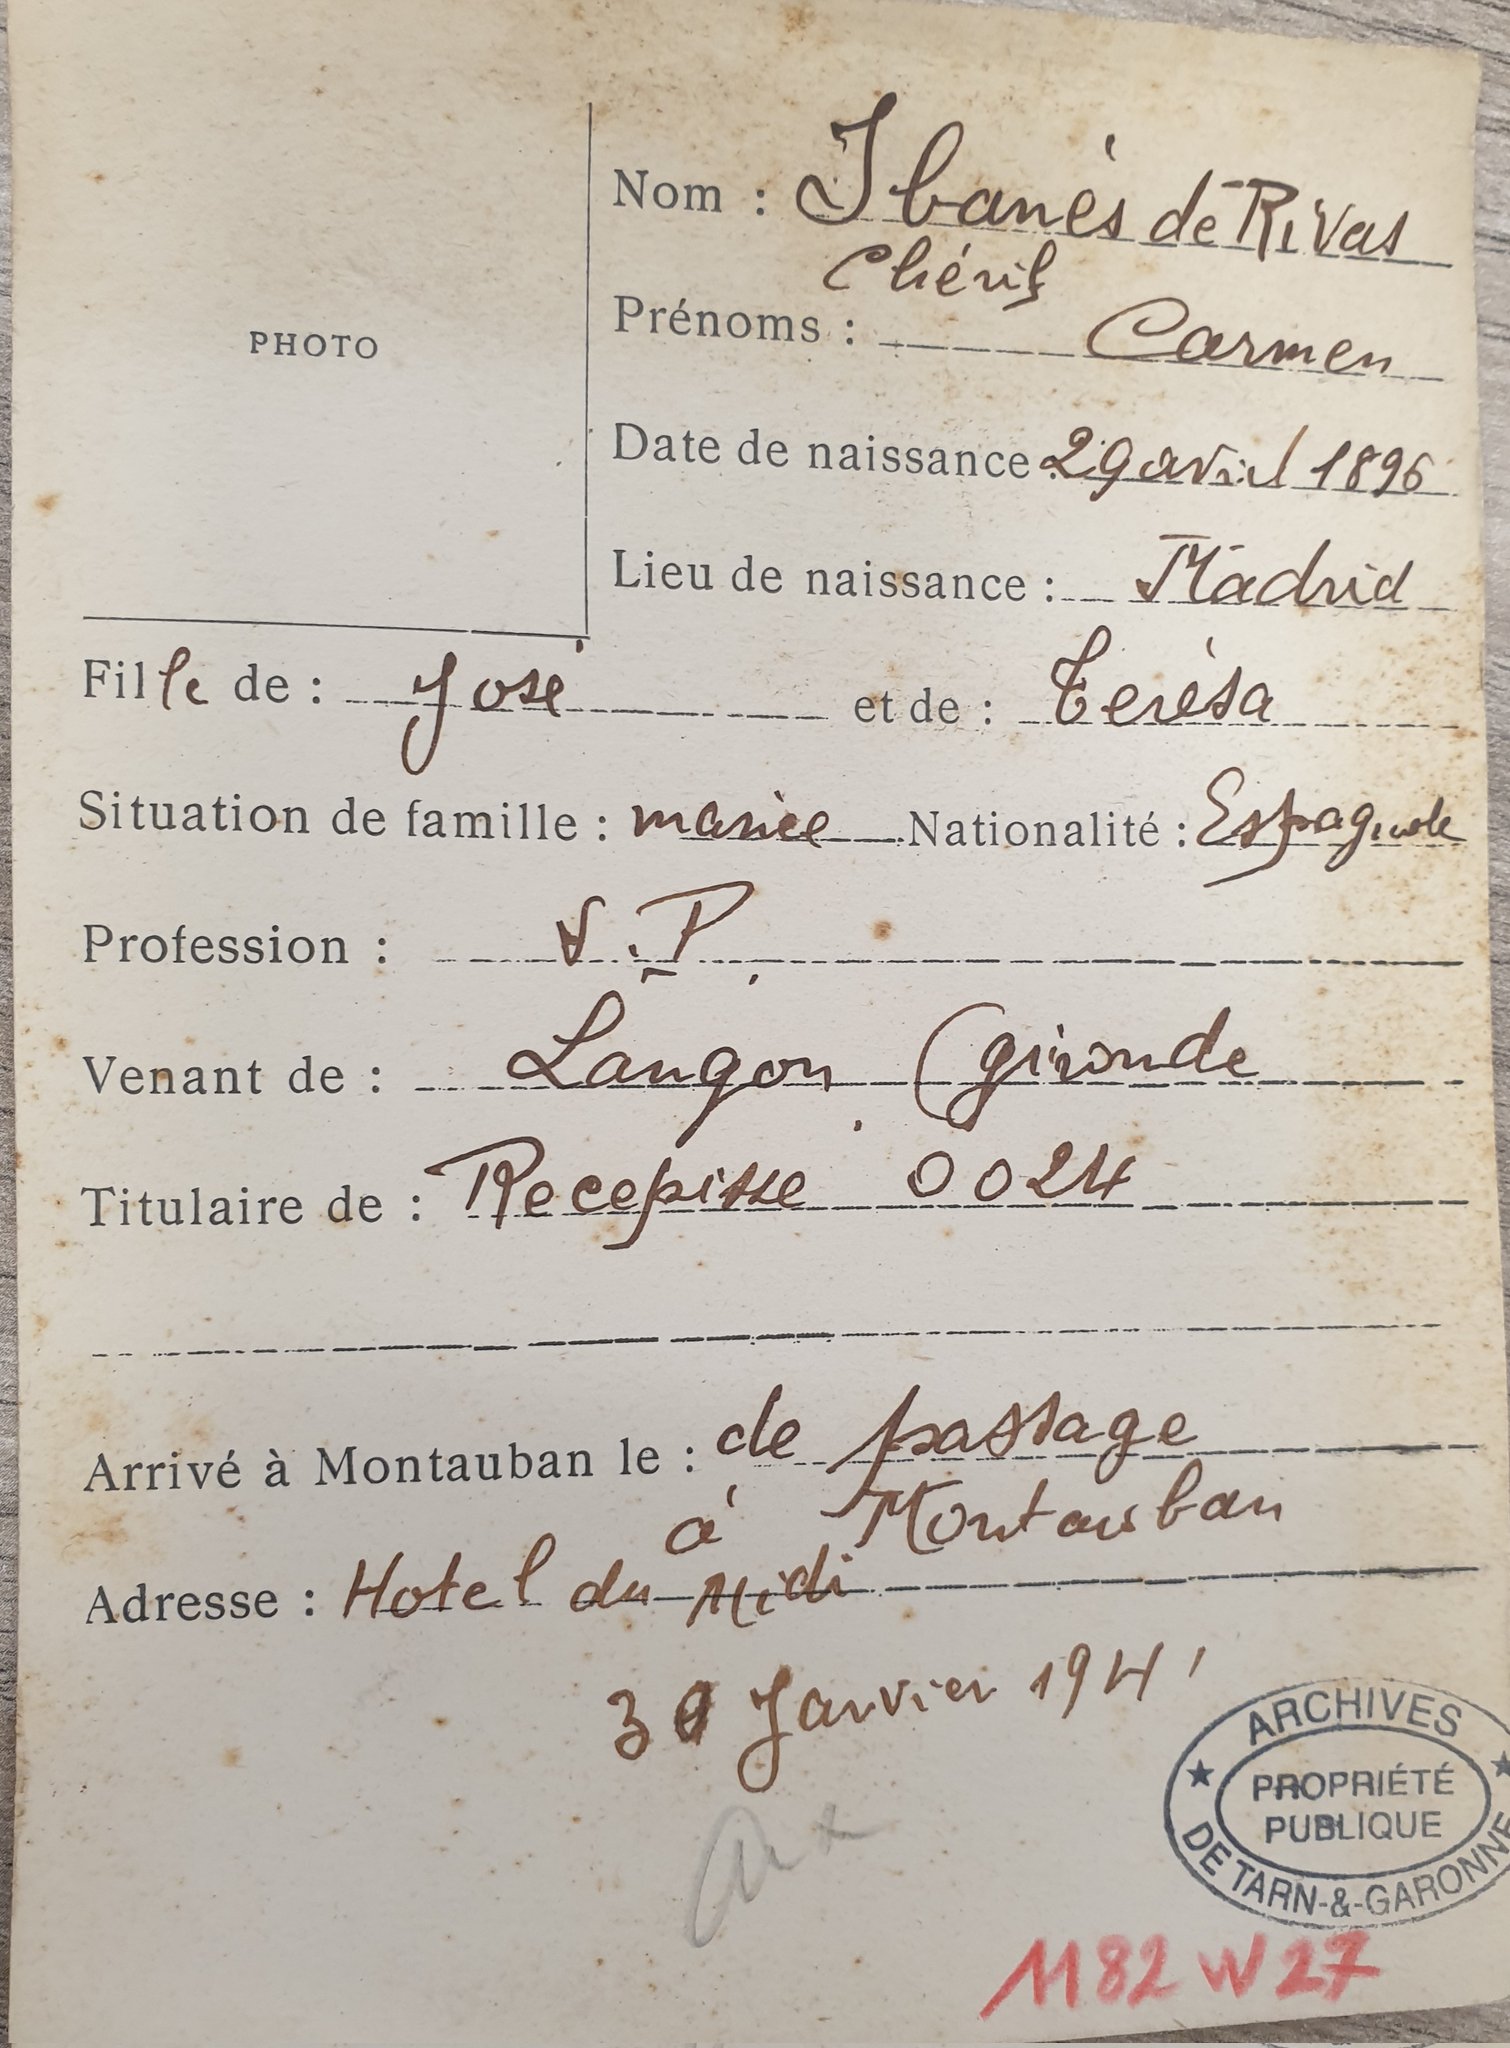 PHOTO
Nom : Ibanès de Rivas
Chérif
Prénoms : Carmen
Date de naissance 29 avril 1896
Lieu de naissance : Madrid
Fille de : José et de : Terésa
Situation de famille : mariée Nationalité : Espagnole
Profession : S.P.
Venant de : Langon (gironde
Titulaire de : Recepisse 0024
Arrivé à Montauban le : de passage
à Montauban
Adresse : Hotel du Midi
30 Janvier 1941
ARCHIVES
PROPRIÉTÉ
PUBLIQUE
DE TARN-&-GARONNE
1182 W 27